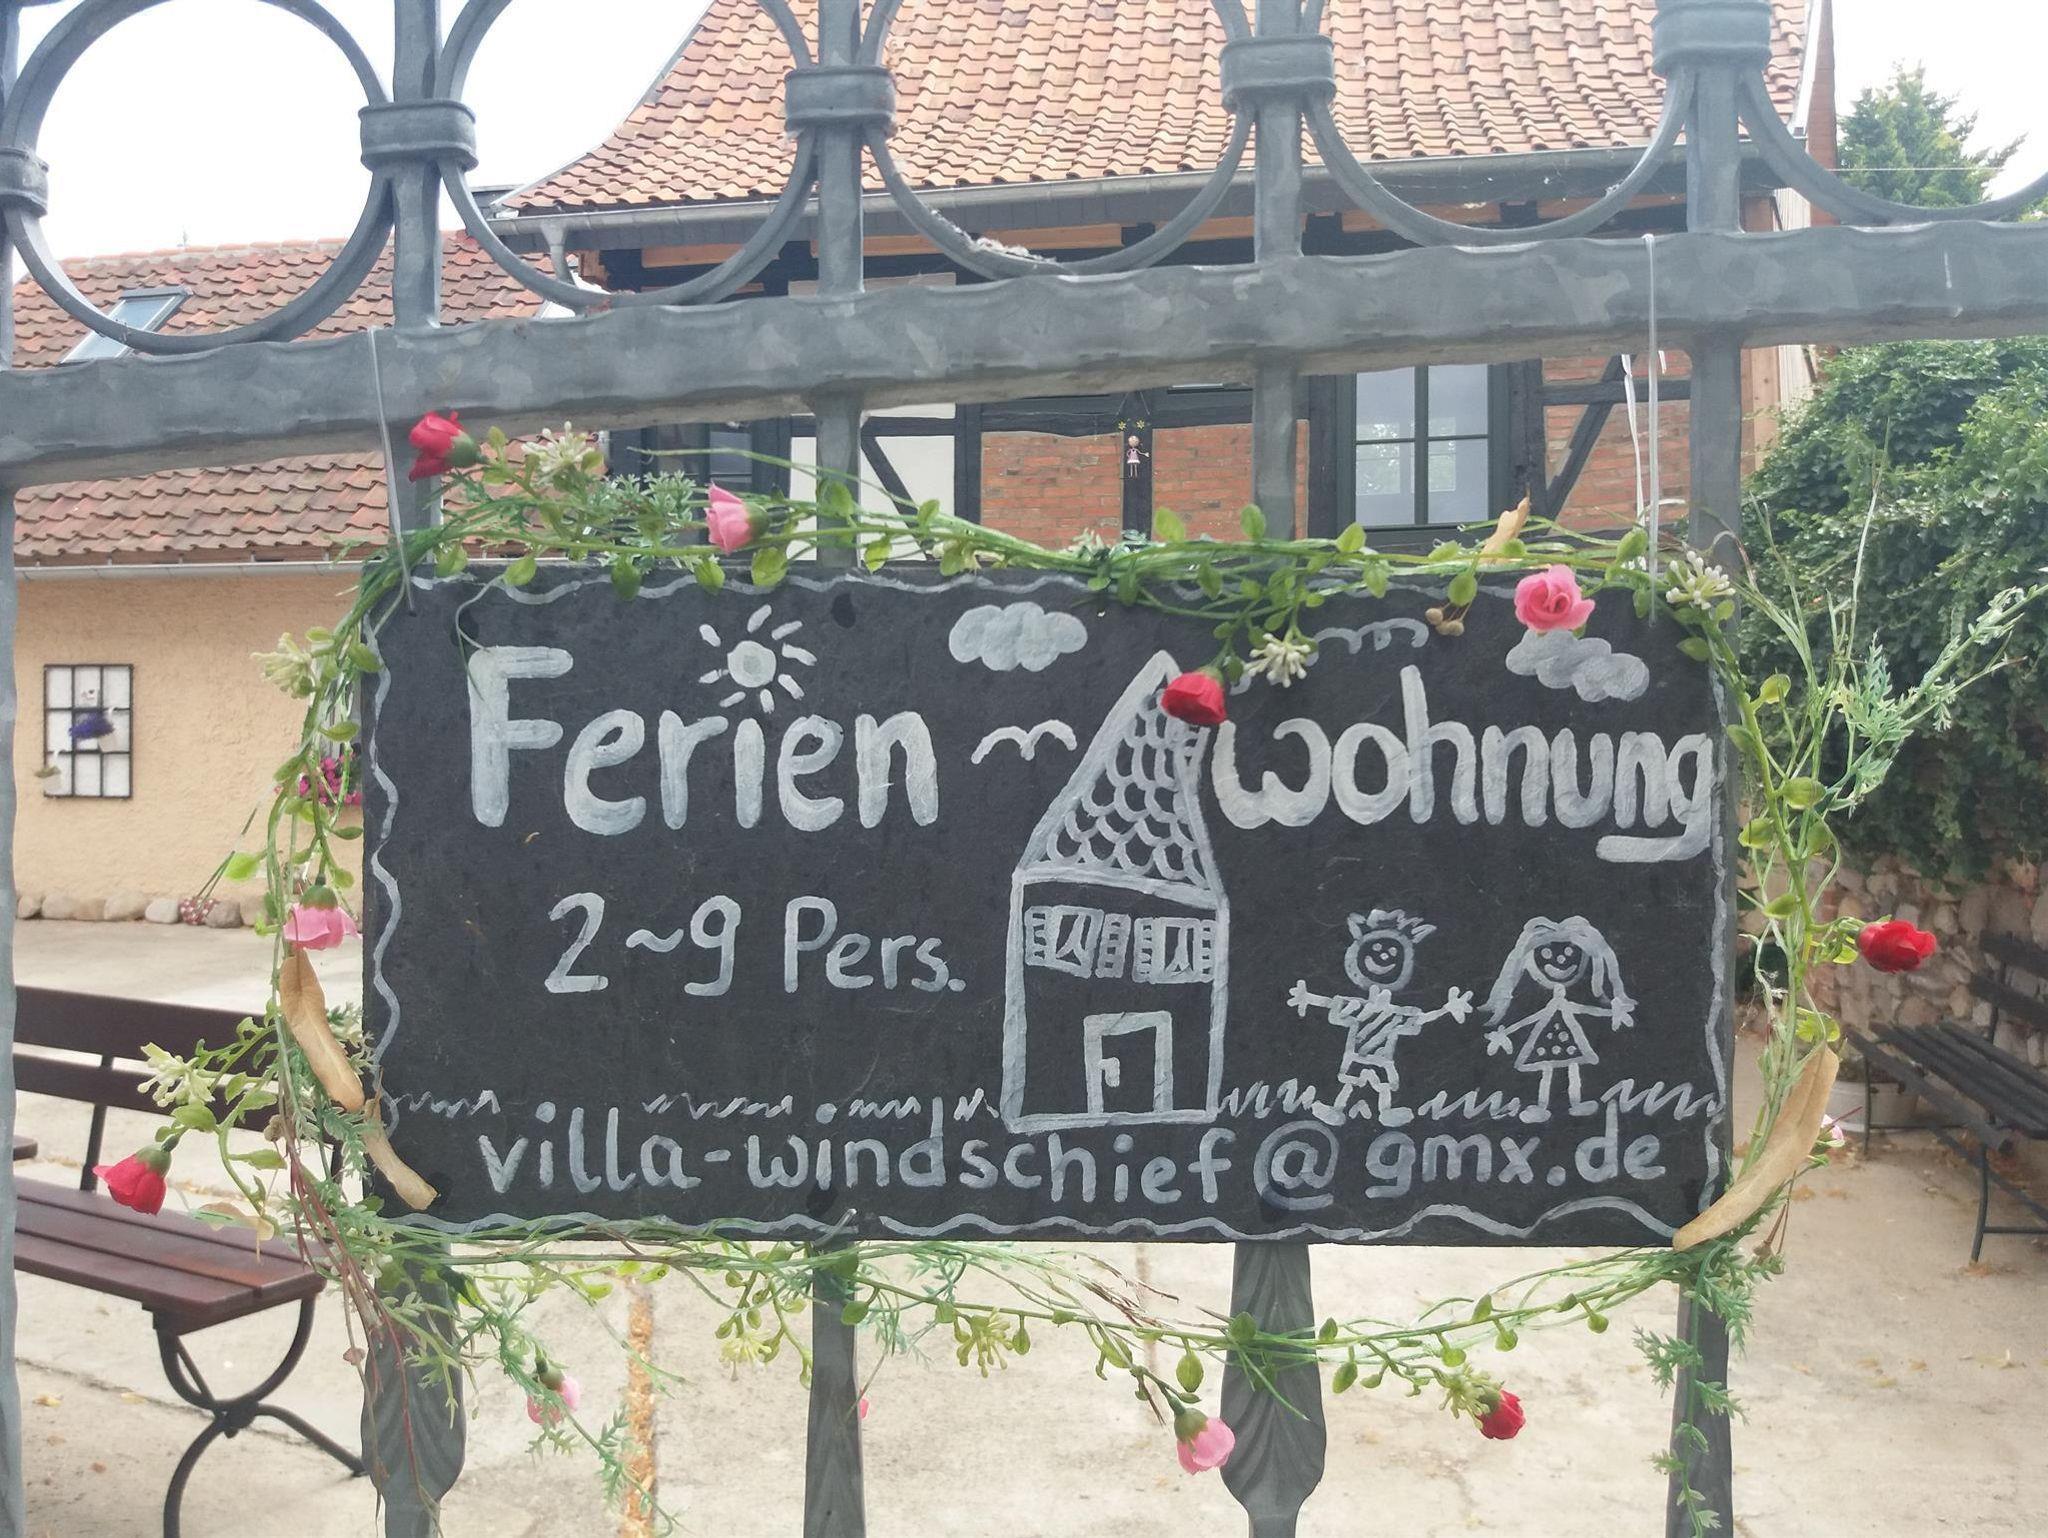 Ferien wohnung
2~9 Pers.
villa-windschief@gmx.de